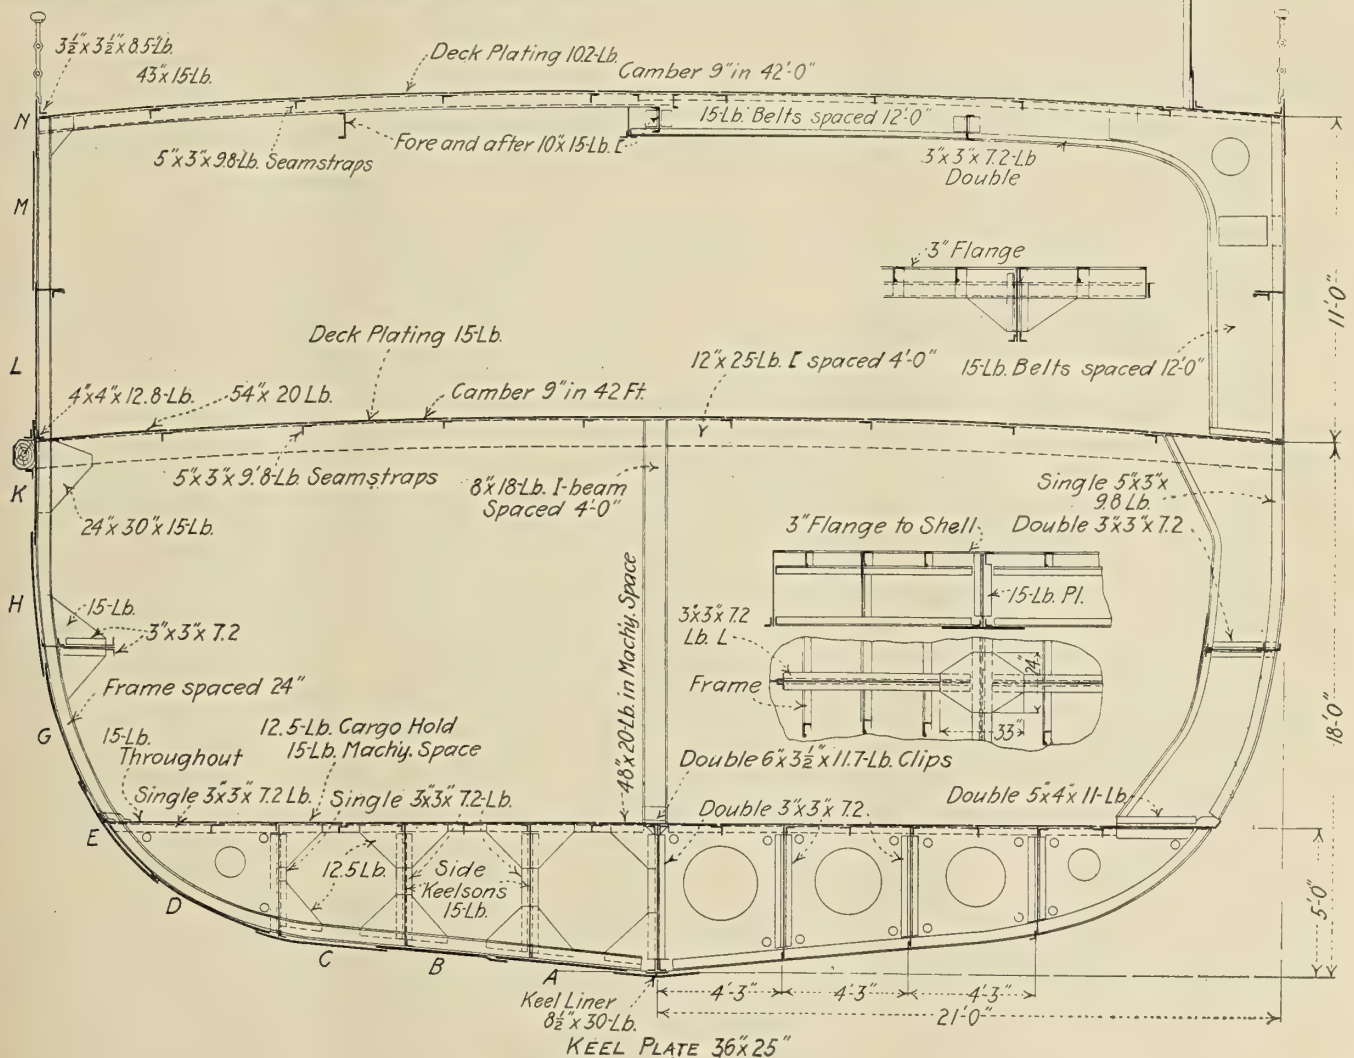 3½"x3½"x8.5-Lb.
43"x15-Lb.
Deck Plating 10.2-Lb.
Camber 9" in 42'-0"
N
5"x3"x9.8-Lb. Seamstraps
Fore and after 10"x15-Lb. [
15-Lb. Belts spaced 12'-0"
3"x3"x7.2-Lb
Double
M
3" Flange
11'-0"
Deck Plating 15-Lb.
12"x25-Lb. [ spaced 4'-0"
15-Lb. Belts spaced 12'-0"
L
4"x4"x12.8-Lb.
54"x20 Lb.
Camber 9" in 42 Ft.
5"x3"x9'8-Lb. Seamstraps
8"x18-Lb. I-beam
Spaced 4'-0"
Single 5"x3"x
9.8 Lb.
K
24"x30"x15-Lb.
3" Flange to Shell
Double 3"x3"x7.2
H
15-Lb.
3"x3"x7.2
48"x20-Lb. in Machy. Space
15-Lb. Pl.
3"x3"x7.2
Lb. L
24"
Frame
33"
Frame spaced 24"
18'-0"
G
15-Lb.
Throughout
12.5-Lb. Cargo Hold
15-Lb. Machy. Space
Double 6"x3½"x11.7-Lb. Clips
Single 3"x3"x7.2 Lb.
Single 3"x3"x7.2-Lb.
Double 3"x3"x7.2
Double 5"x4"x11-Lb
E
12.5 Lb.
Side
Keelsons
15-Lb.
5'-0"
D
C
B
A
4'-3"
4'-3"
4'-3"
21'-0"
Keel Liner
8½"x30-Lb.
KEEL PLATE 36"x25"